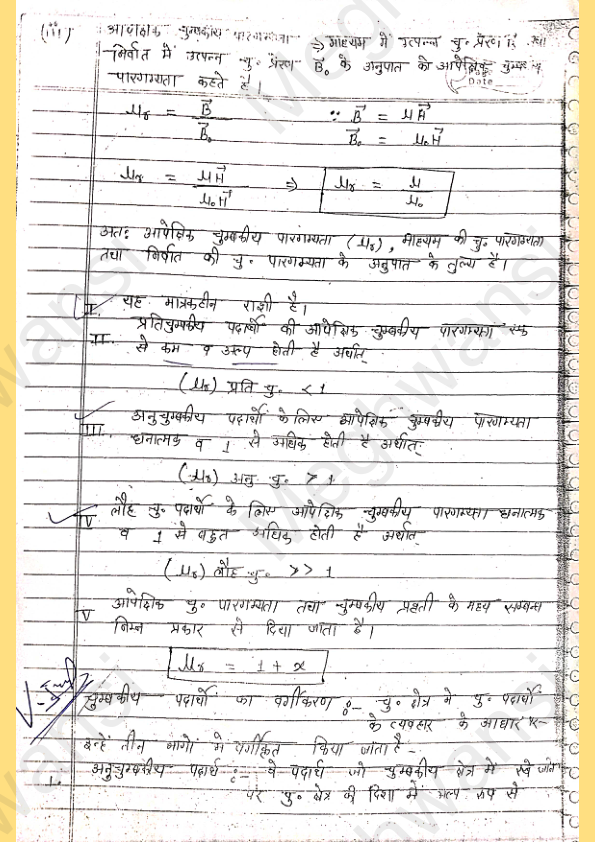 (iii) आपेक्षिक चुम्बकीय पारगम्यता ⇒ माध्यम में उत्पन्न चु॰ प्रेरण B तथा
निर्वात में उत्पन्न चु॰ प्रेरण B⃗₀ के अनुपात को आपेक्षिक चुम्बकीय
पारगम्यता कहते है।
Date
μr = B⃗ / B⃗₀ ∵ B⃗ = μH⃗
B⃗₀ = μ₀H⃗
μr = μH⃗ / μ₀H⃗ ⇒ μr = μ / μ₀
अतः आपेक्षिक चुम्बकीय पारगम्यता (μr), माध्यम की चु॰ पारगम्यता
तथा निर्वात की चु॰ पारगम्यता के अनुपात के तुल्य है।
I. यह मात्रकहीन राशी है।
II. प्रतिचुम्बकीय पदार्थो की आपेक्षिक चुम्बकीय पारगम्यता एक
से कम व अल्प होती है अर्थात्
(μr) प्रति चु॰ < 1
III. अनुचुम्बकीय पदार्थो के लिए आपेक्षिक चुम्बकीय पारगम्यता
धनात्मक व 1 से अधिक होती है अर्थात्
(μr) अनु चु॰ > 1
IV लौह चु॰ पदार्थो के लिए आपेक्षिक चुम्बकीय पारगम्यता धनात्मक
व 1 से बहुत अधिक होती है अर्थात्
(μr) लौह चु॰ >> 1
V आपेक्षिक चु॰ पारगम्यता तथा चुम्बकीय प्रवृती के मध्य सम्बन्ध
निम्न प्रकार से दिया जाता है।
μr = 1 + x
चुम्बकीय पदार्थो का वर्गीकरण :- चु॰ क्षेत्र मे चु॰ पदार्थो
के व्यवहार के आधार पर
इन्हे तीन भागो मे वर्गीकृत किया जाता है -
1. अनुचुम्बकीय पदार्थ :- वे पदार्थ जो चुम्बकीय क्षेत्र मे रखे जाने
पर चु॰ क्षेत्र की दिशा में अल्प रूप से
Meghwansi